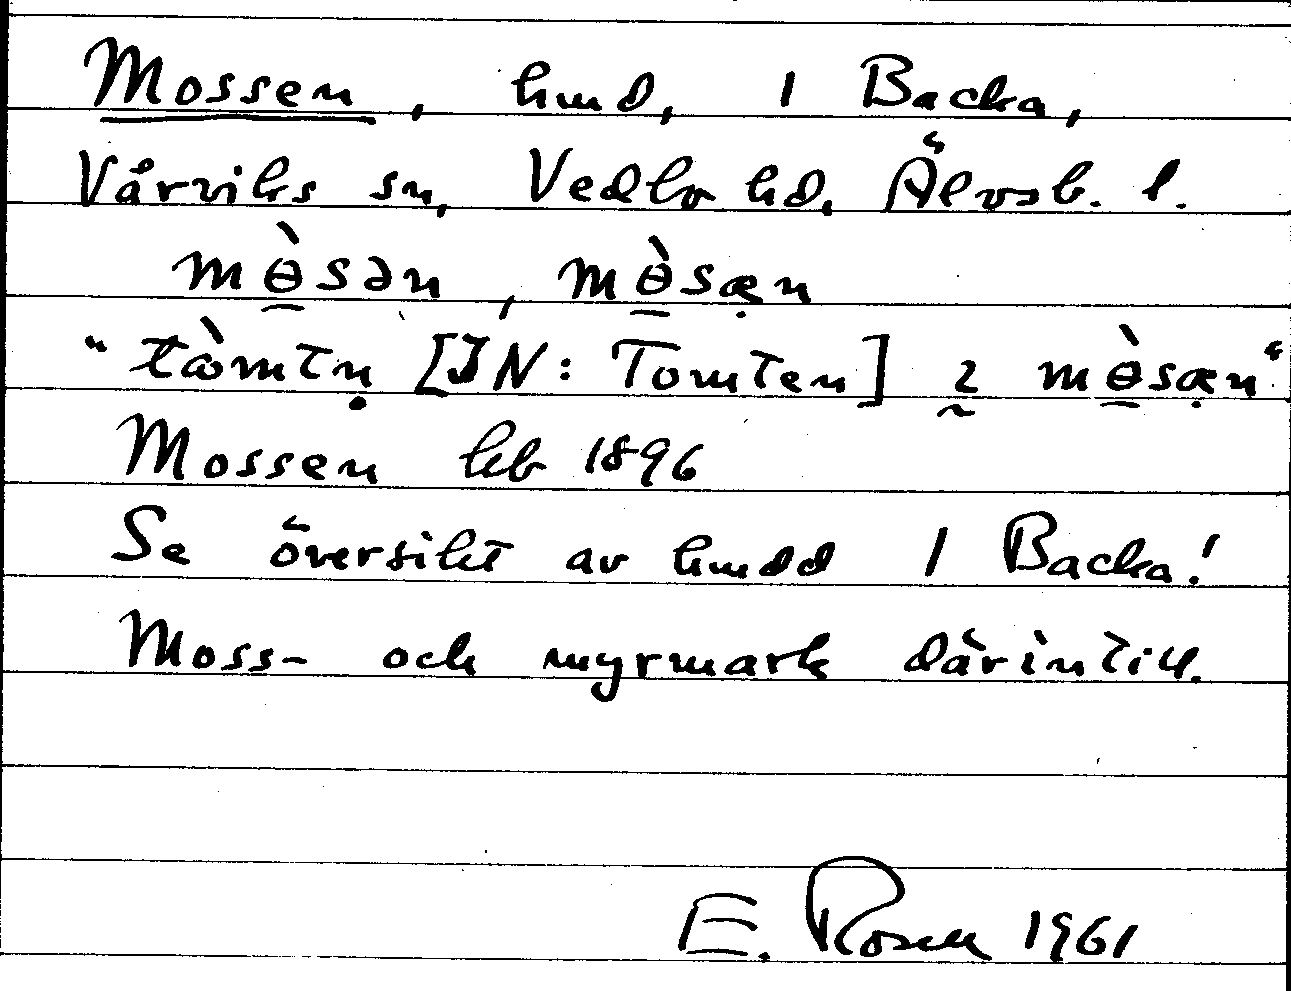 Mossen, hmd, 1 Backa,
Vårviks sn, Vedbo hd, Älvsb. l.
mɵ̠̀sən, mɵ̠̀sæ̣n
"tɷ̀mtṇ [JN: Tomten] ɪ̰ mɵ̠̀sæ̣n"
Mossen hb 1896
Se översikt av hmdd 1 Backa!
Moss- och myrmark därintill.
E. Rosell 1961